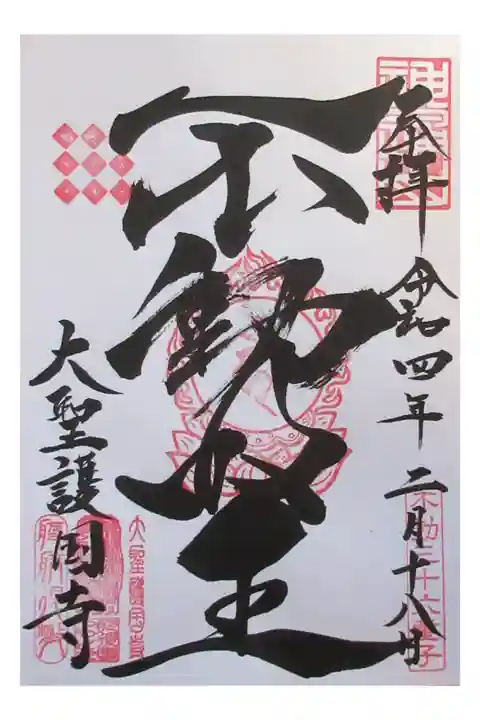 奉拝
令和四年二月十八日
不動三十六童子
不動明王
大聖護國寺
大聖護国寺